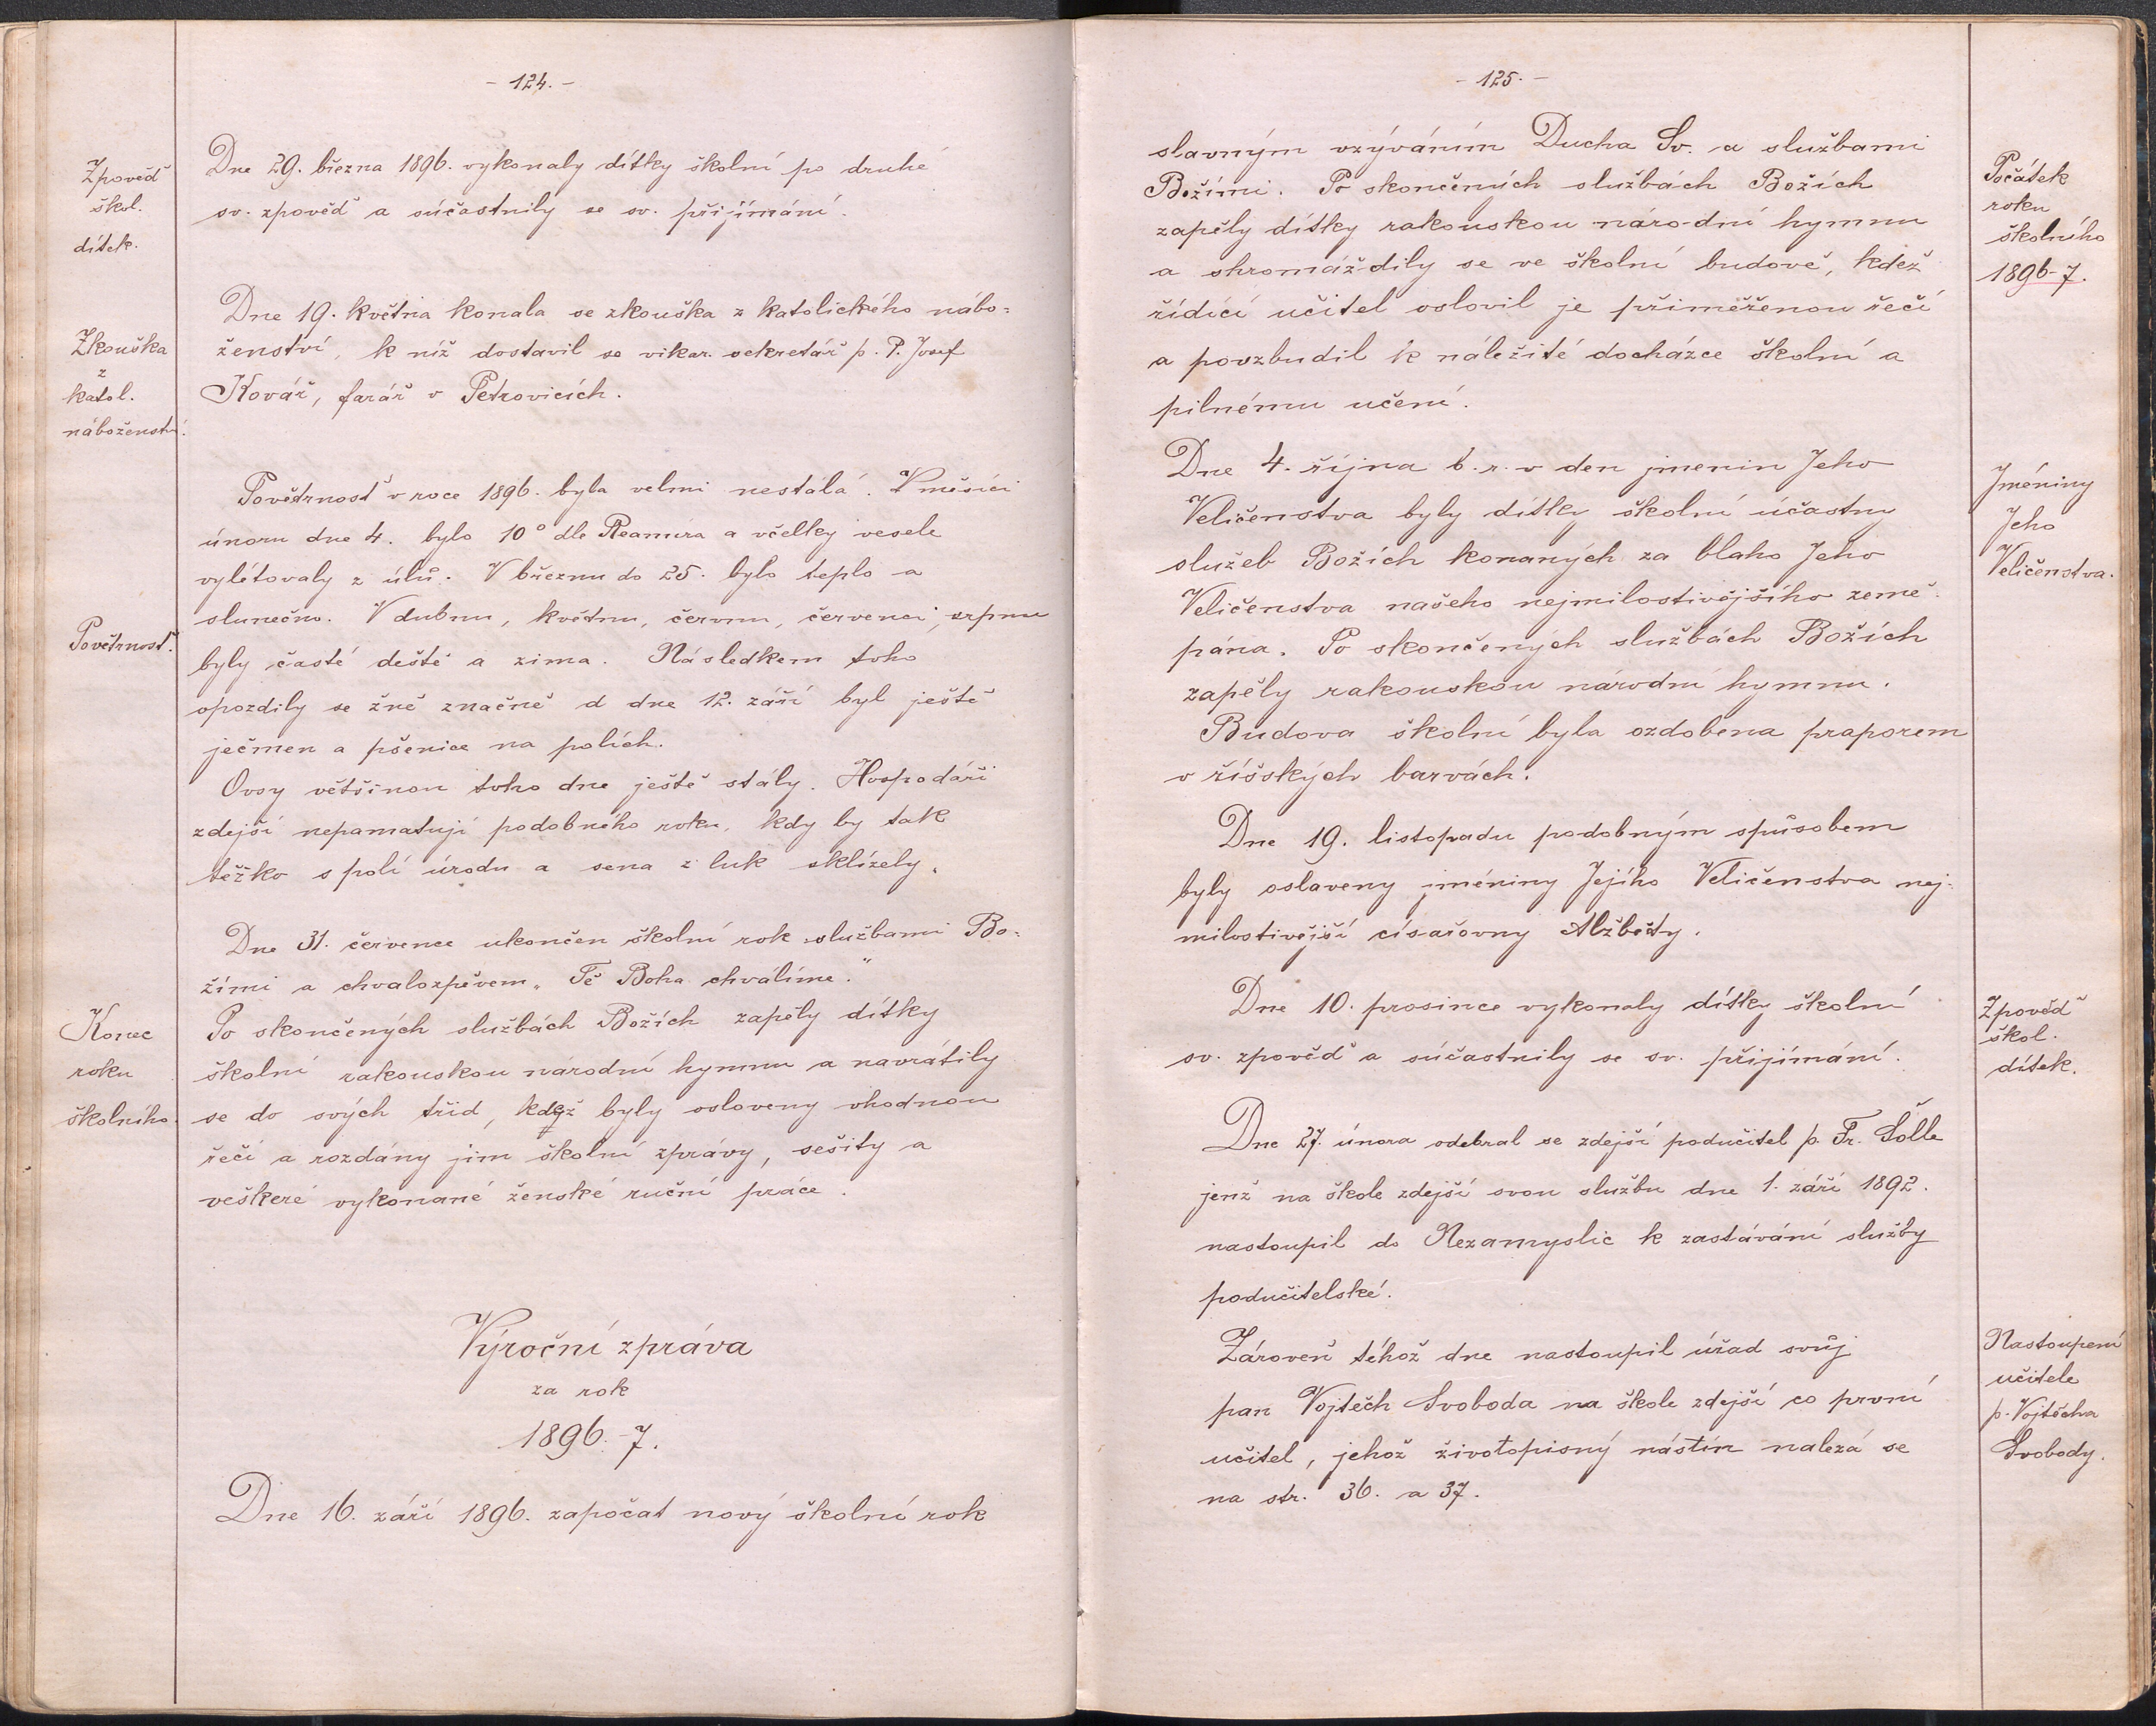 - 124. -
Zpověď
škol.
dítek.
Dne 29. března 1896. vykonaly dítky školní po druhé
sv. zpověď a súčastnily se sv. přijímání.
Zkouška
z
katol.
náboženství.
Dne 19. května konala se zkouška z katolického nábo-
ženství, k níž dostavil se vikar. sekretář p. P. Josef
Kovář, farář v Petrovicích.
Povětrnosť.
Povětrnosť v roce 1896. byla velmi nestálá. V měsíci
únoru dne 4. bylo 10° dle Reamura a včelky vesele
vylétovaly z úlů. V březnu do 25. bylo teplo a
slunečno. V dubnu, květnu, červnu, červenci, srpnu
byly časté deště a zima. Následkem toho
opozdily se žně značně d dne 12. září byl ještě
ječmen a pšenice na polích.
Ovsy většinou toho dne ještě stály. Hospodáři
zdejší nepamatují podobného roku, kdy by tak
těžko s polí úrodu a sena z luk sklízely.
Konec
roku
školního.
Dne 31. července ukončen školní rok službami Bo-
žími a chvalozpěvem „Tě Boha chválíme."
Po skončených službách Božích zapěly dítky
školní rakouskou národní hymnu a navrátily
se do svých tříd, kdež byly osloveny vhodnou
řečí a rozdány jim školní zprávy, sešity a
veškeré vykonané ženské ruční práce.
Výroční zpráva
za rok
1896.-7.
Dne 16. září 1896. započat nový školní rok
- 125. -
slavným vzýváním Ducha Sv. a službami
Božími. Po skončených službách Božích
zapěly dítky rakouskou národní hymnu
a shromáždily se ve školní budově, kdež
řídící učitel oslovil je přiměřenou řečí
a povzbudil k náležité docházce školní a
pilnému učení.
Počátek
roku
školního
1896-7.
Dne 4. října t. r. v den jmenin Jeho
Veličenstva byly dítky školní účastny
služeb Božích konaných za blaho Jeho
Veličenstva našeho nejmilostivějšího země-
pána. Po skončených službách Božích
zapěly rakouskou národní hymnu.
Budova školní byla ozdobena praporem
v říšských barvách.
Jméniny
Jeho
Veličenstva.
Dne 19. listopadu podobným spůsobem
byly oslaveny jméniny Jejího Veličenstva nej-
milostivější císařovny Alžběty.
Dne 10. prosince vykonaly dítky školní
sv. zpověď a súčastnily se sv. přijímání.
Zpověď
škol.
dítek.
Dne 27. února odebral se zdejší podučitel p. Fr. Šolle
jenž na škole zdejší svou službu dne 1. září 1892.
nastoupil do Nezamyslic k zastávání služby
podučitelské.
Zároveň téhož dne nastoupil úřad svůj
pan Vojtěch Svoboda na škole zdejší co první
učitel, jehož životopisný nástin nalezá se
na str. 36. a 37.
Nastoupení
učitele
p. Vojtěcha
Svobody.